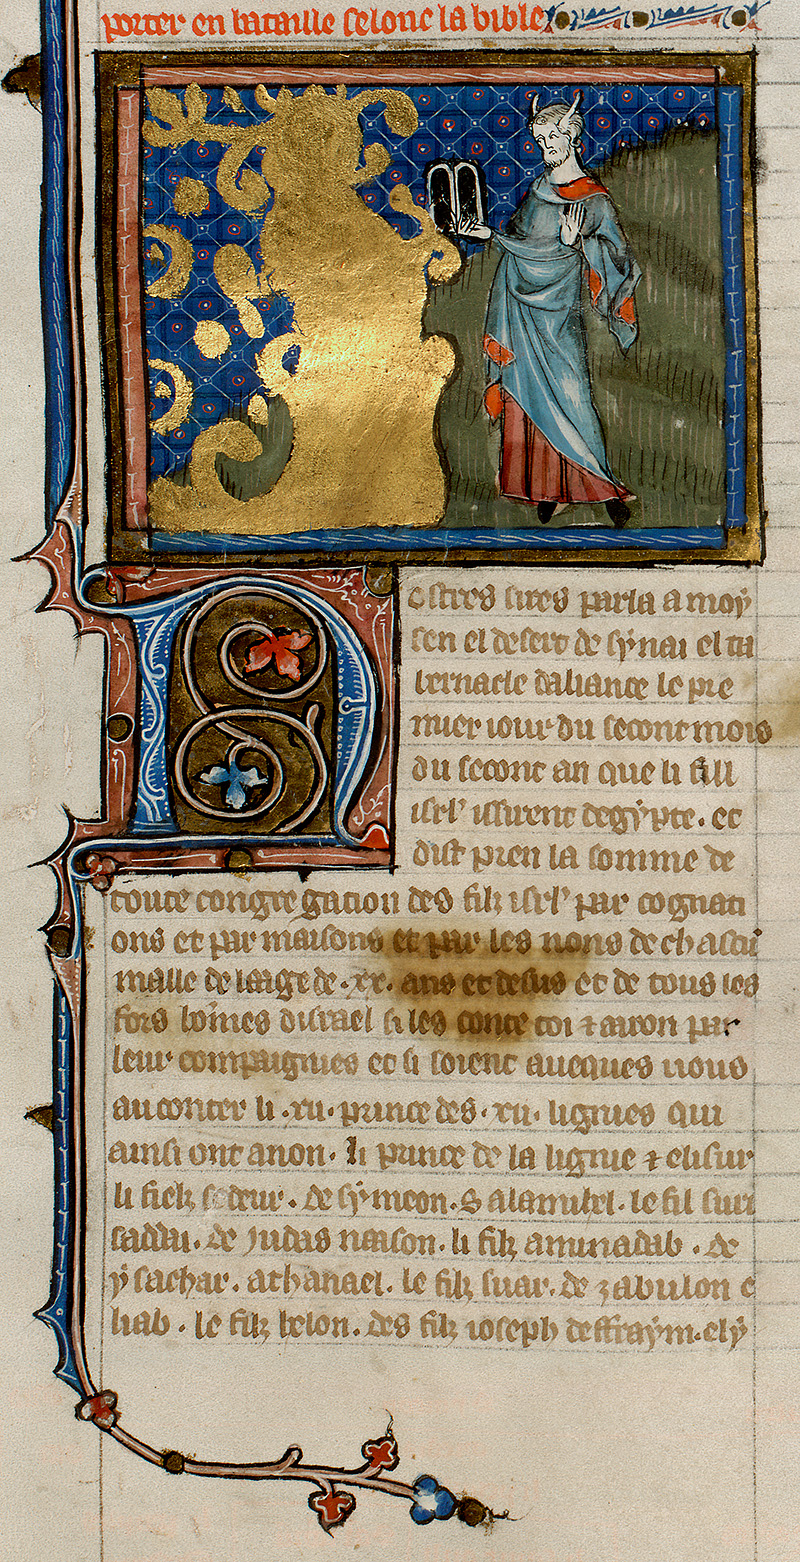 porter en bataille selonc la bible
Nostres sires parla a moy
sen el desert de synai el ta
bernacle daliance le pre
mier iour du secont mois
du secont an que li fill
isrl' issirent degypte. et
dist pren la somme de
toute congregation des filz isrl' par cognati
ons et par maisons et par les nons de chascū
malle de laage de .xx. ans et desus et de tous les
fors hōmes disrael si les conte toi ⁊ aaron par
leur compaignies et si soient auecques uous
au conter li .xii. prince des .xii. lignies qui
ainsi ont a non. li prince de la lignie ⁊ elisur
li filz sedeur. de symeon. Salamihel. le fil suri
saddai. de Iudas naason. li filz aminadab. de
ysachar. athanael. le filz suar. de zabulon e
liab. le filz helon. des filz ioseph deffraym. ely